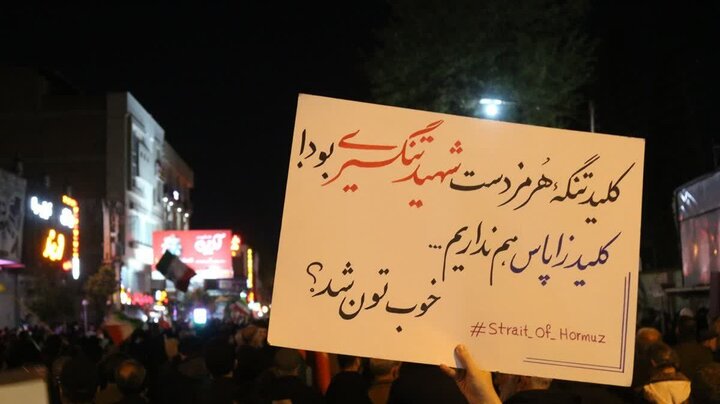 کلید تنگهٔ هُرمز دست شهید تنگسیری بود!
کلید زاپاس هم نداریم...
خوب تون شد؟
#Strait_Of_Hormuz